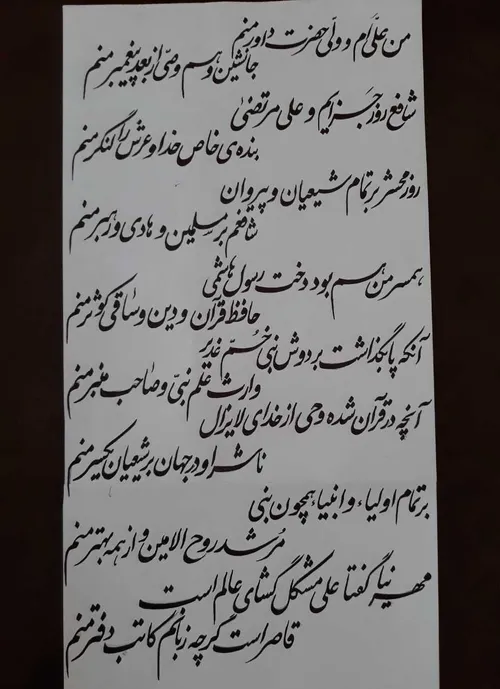 من علی‌ام و ولّی حضرت داورمنم
جانشین و هم وصی از بعد پیغمبر منم
شافع روز جزایم و علی مرتضیٰ
بنده‌ی خاص خدا و عرش را لنگر منم
روز محشر بر تمام شیعیان و پیروان
شافعم بر مسلمین و هادی و رهبر منم
همسر من هم بود دخت رسول هاشمی
حافظ قرآن و دین و ساقی کوثر منم
آنکه پا بگذاشت بر دوش نبی خُمّ غدیر
وارث علم نبّی و صاحب منبر منم
آنچه در قرآن شده وحی از خدای لایزال
ناشر او در جهان بر شیعیان یکسر منم
بر تمام اولیاء و انبیاء همچون نبی
مُرشد روح الامین و از همه بهتر منم
مهرنیا گفتا علی مشکل گشای عالم است
قاصر است گرچه زبانم کاتب دفتر منم